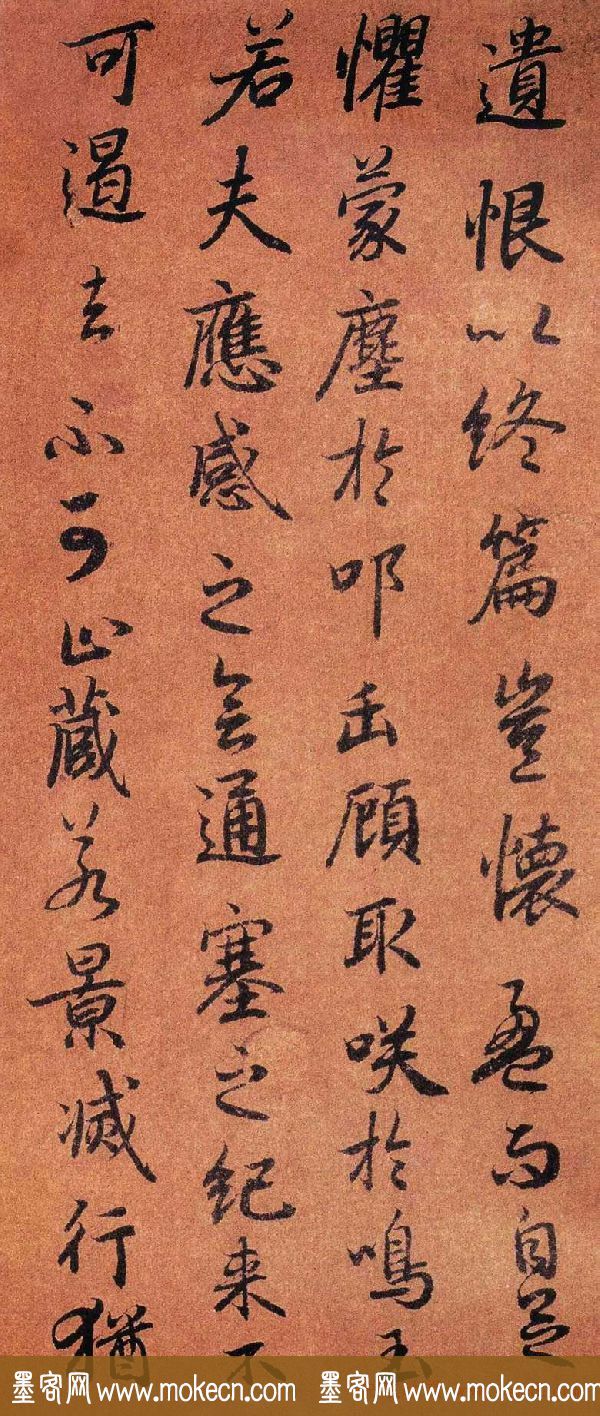 遺恨以終篇豈懷盈而自足
懼蒙塵於叩缶顧取咲於鳴玉
若夫應感之會通塞之紀来不
可遏去不可止藏若景滅行猶
墨客网 www.mokecn.com 墨客网 www.mokecn.com